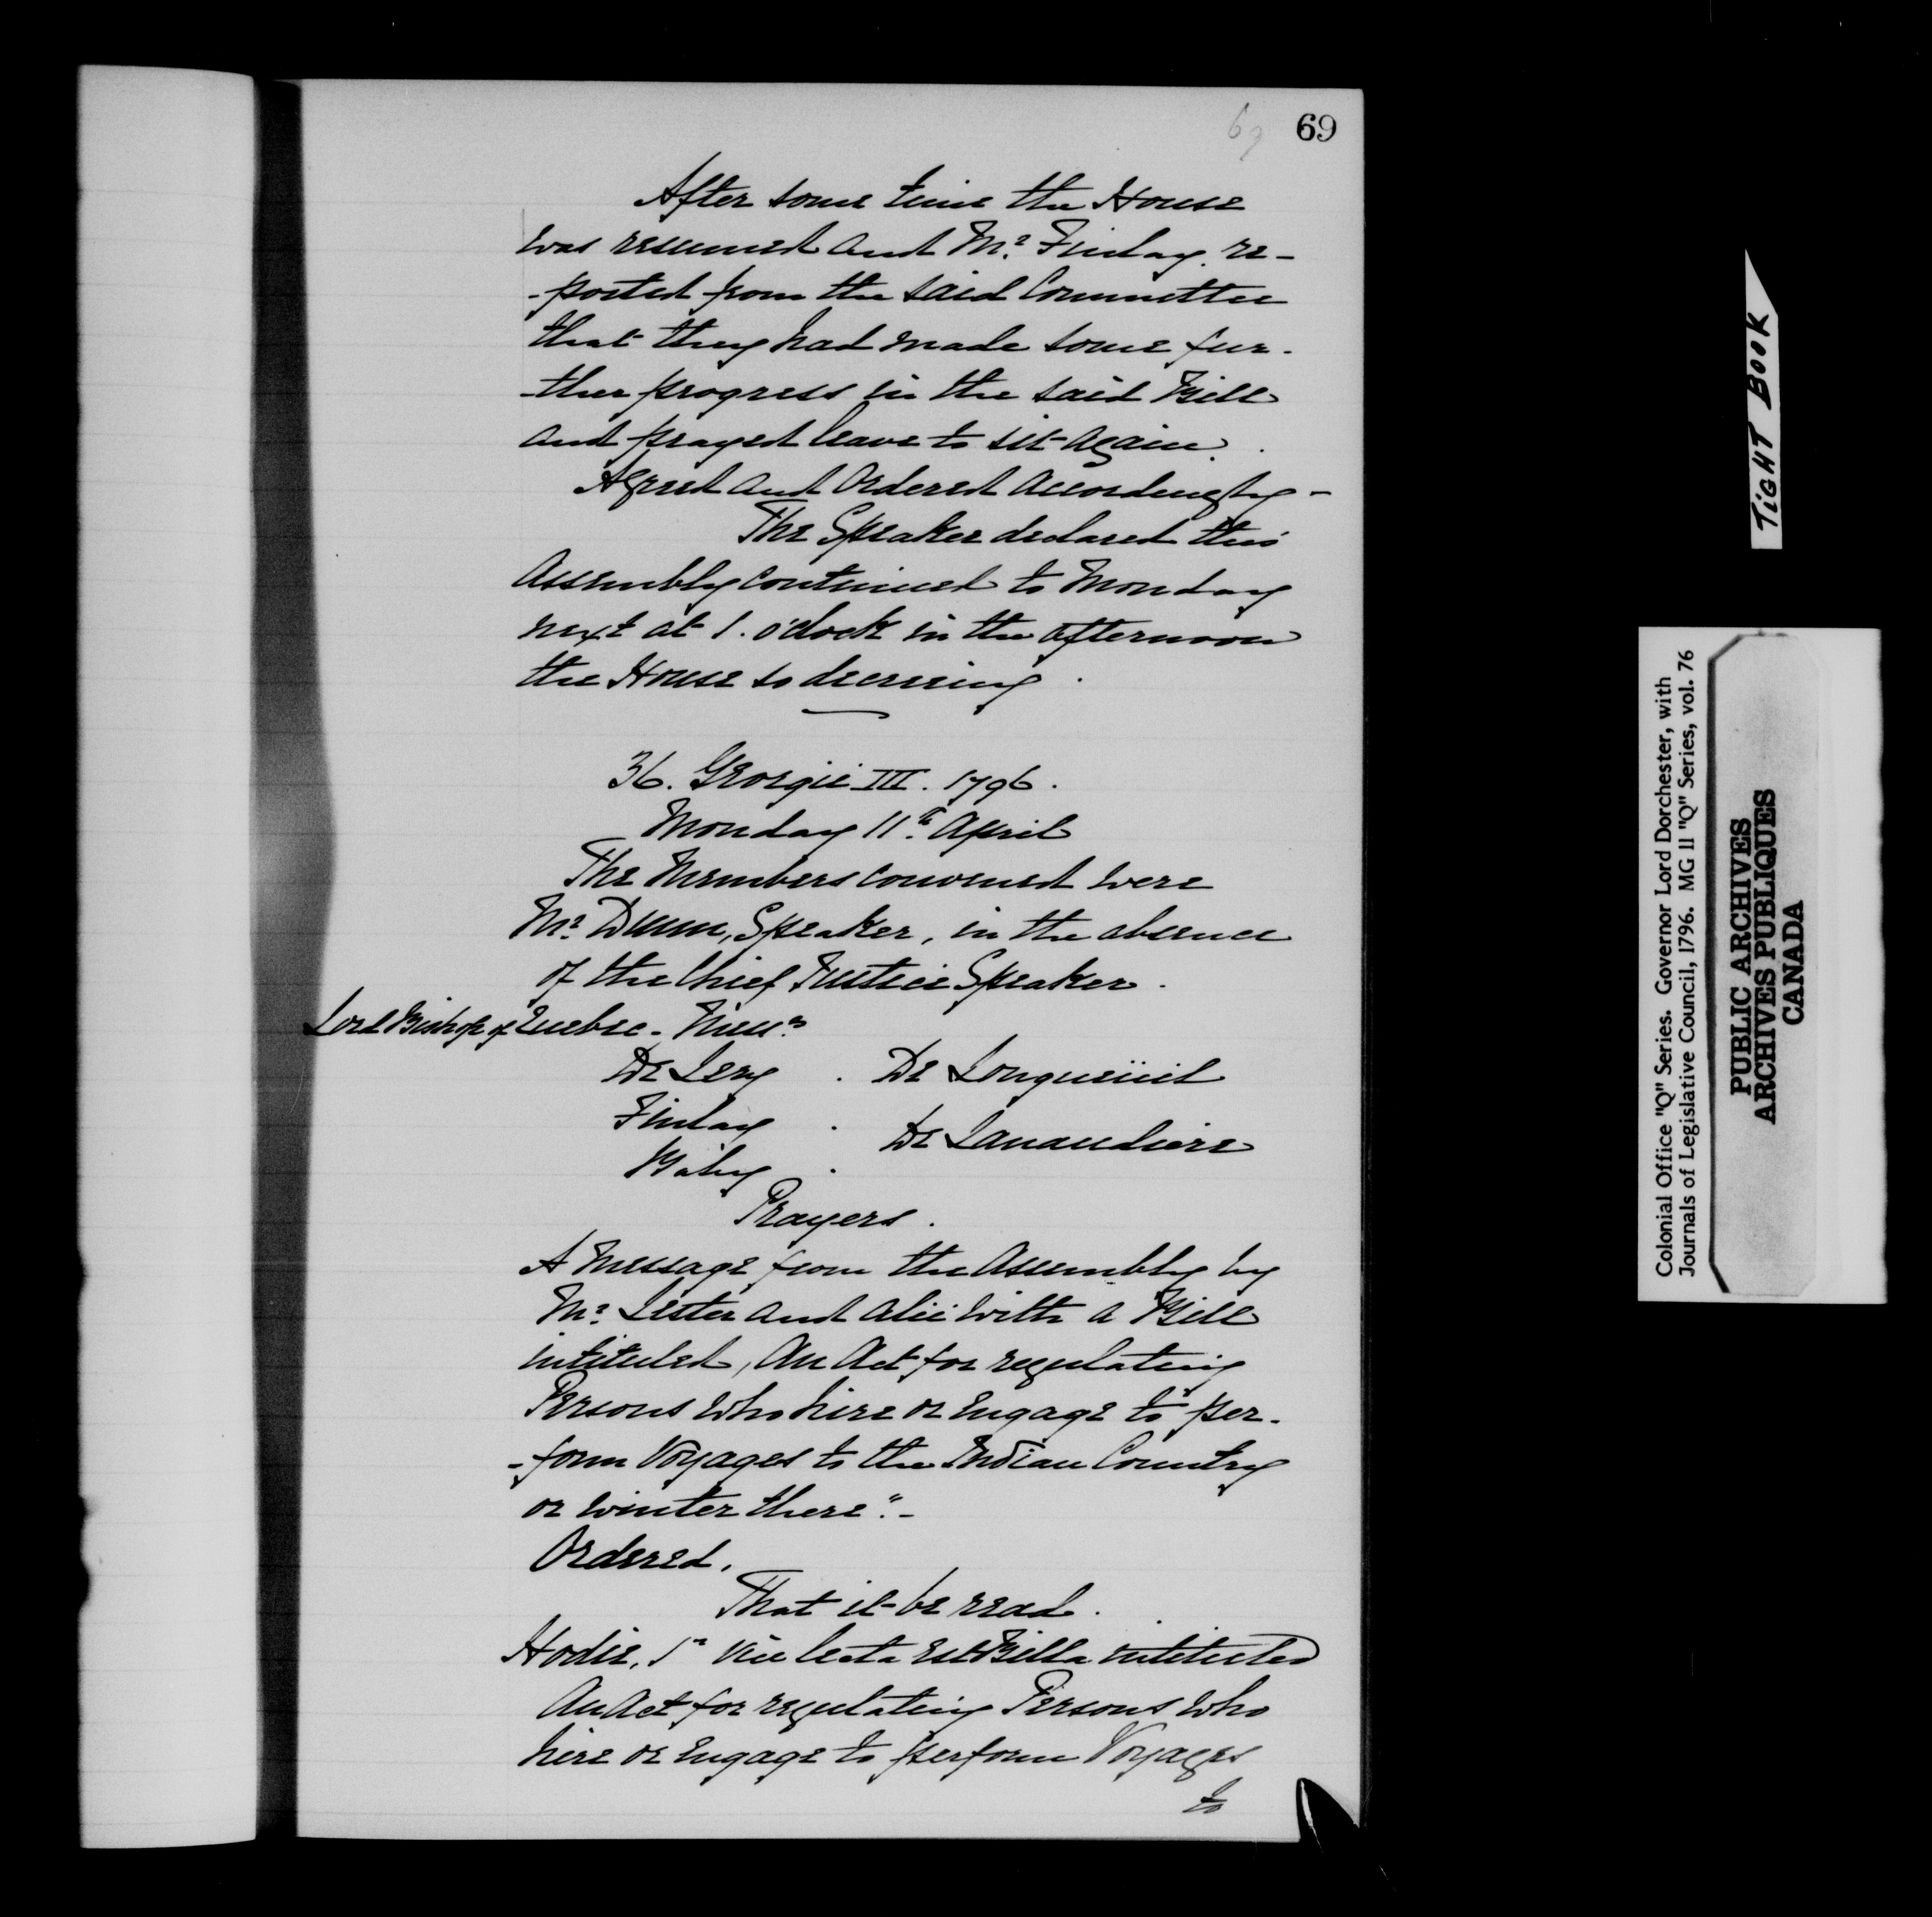 69
69
After some time the House
was resumed and Mr. Finlay re-
-ported from the said Committee
that they had made some fur-
-ther progress in the said Bill
and prayed leave to sit again.
Agreed and Ordered accordingly -
The Speaker declared this
Assembly continued to Monday
next at 1. o'clock in the afternoon
the House so decreeing.
36. Georgii III. 1796.
Monday 11th April
The Members convened were
Mr. Dunn, Speaker, in the absence
of the Chief Justice Speaker.
Lord Bishop of Quebec - Messrs
De Lery . De Longueüil
Finlay .
De Lanaudiere
Baby .
Prayers.
A Message from the Assembly by
Mr. Lester and alii with a Bill
intituled, An Act for regulating
Persons who hire or engage to per-
-form Voyages to the Indian Country
or winter there". -
Ordered,
That it be read.
Hodie, 1a vice lecta est Billa intituled
An Act for regulating Persons who
hire or engage to perform Voyages
to
TIGHT BOOK
Colonial Office "Q" Series. Governor Lord Dorchester, with
Journals of Legislative Council, 1796. MG 11 "Q" Series, vol. 76
PUBLIC ARCHIVES
ARCHIVES PUBLIQUES
CANADA